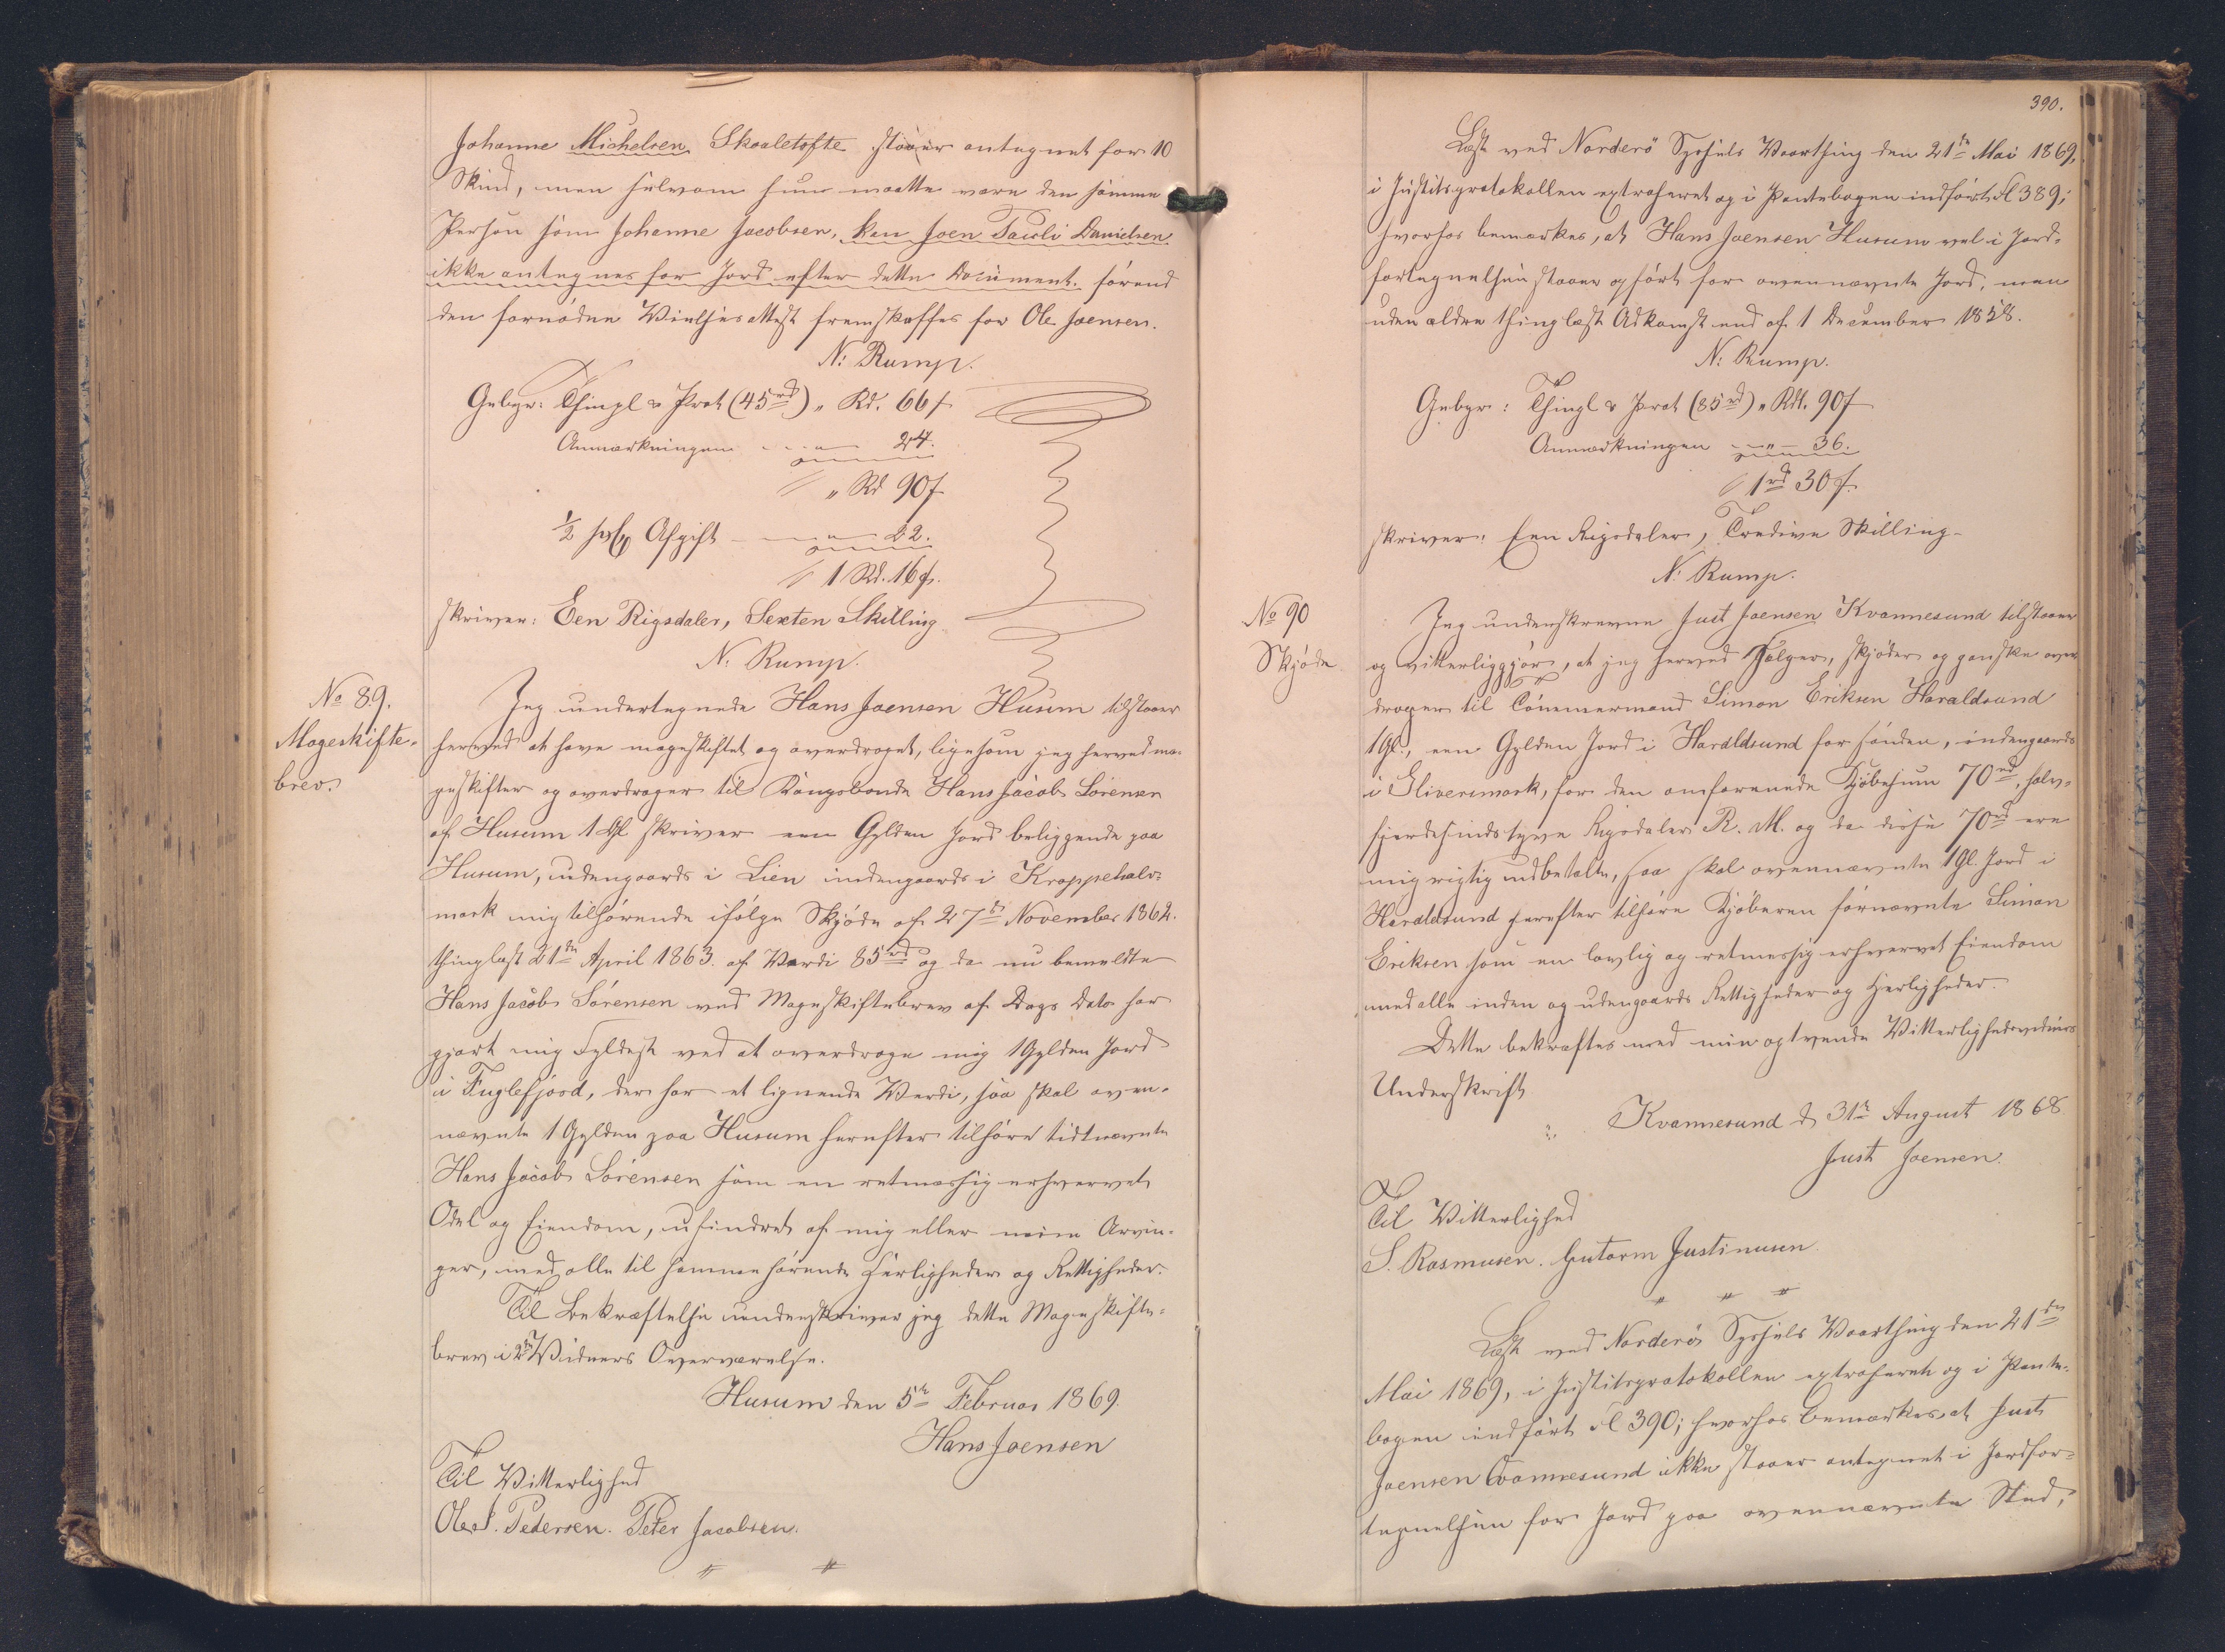 Johanne Michelsen Skaaletofte staaer antegnet for 10
Skind, men selvom hun maatte være den samme
Person som Johanne Jacobsen, kan Joen Pauli Danielsen
ikke antegnes for Jord efter dette Document, förend
den fornødne Vielsesattest fremskaffes for Ole Joensen.
N: Rump.
Gebyr: Thingl & Prot (45rd) " Rd. 66 ß
Anmærkningen - - " - 24.
" Rd 90 ß
½ pCt Afgift - - " - 22.
1 Rd. 16 ß.
skriver: Een Rigsdaler, Sexten Skilling
N: Rump.
No 89.
Mageskifte-
brev.
Jeg undertegnede Hans Joensen Husum tilstaaer
herved at have mageskiftet og overdraget, ligesom jeg herved ma-
geskifter og overdrager til Kongsbonde Hans Jacob Sörensen
af Husum 1 Gl skriver een Gylden Jord beliggende paa
Husum, udengaards i Lien indengaards i Kroppehalv-
mark mig tilhörende ifölge Skjöde af 27de November 1862.
thinglæst 21de April 1863. af Værdi 85rd og da nu bemeldte
Hans Jacob Sörensen ved Mageskiftebrev af Dags Dato har
gjort mig Fyldest ved at overdrage mig 1 Gylden Jord
i Fuglefjord, der har et lignende Værdi, saa skal oven-
nævnte 1 Gylden paa Husum herefter tilhöre tidtnævnte
Hans Jacob Sörensen som en retmæssig erhvervet
Odel og Eiendom, uhindret af mig eller mine Arvin-
ger, med alle til samme hörende Herligheder og Rettigheder.
Til Bekræftelse underskriver jeg dette Mageskifte-
brev i 2de Vidners Overværelse.
Husum den 5te Februar 1869.
Hans Joensen
Til Vitterlighed
Ole J. Pedersen. Peter Jacobsen.
390.
Læst ved Norderö Syssels Vaarthing den 21de Mai 1869,
i Justitsprotokollen extraheret og i Pantebogen indfört Fl 389;
hvorhos bemærkes, at Hans Joensen Husum vel i Jord-
fortegnelsen staaer opfört for ovennævnte Jord, men
uden ældre thinglæst Adkomst end af 1 December 1858.
N: Rump.
Gebyr: Thingl & Prot (85rd) " Rdl. 90 ß
Anmærkningen - " - 36.
1rd 30 ß.
skriver: Een Rigsdaler, Tredive Skilling-
N: Rump.
No 90
Skjöde
Jeg underskrevne Just Joensen Kvannesund tilstaaer
og vitterliggjör, at jeg herved sælger, skjöder og ganske over
drager til Tömmermand Simon Eriksen Haraldsund
1 Gl., een Gylden Jord i Haraldsund for sönden, indengaards
i Eliversmark, for den omforenede Kjöbesum 70rd, halv-
fjerdesindstyve Rigsdaler R. M. og da disse 70rd ere
mig rigtig udbetalte, saa skal ovennævnte 1 Gl. Jord i
Haraldsund herefter tilhöre Kjöberen förnævnte Simon
Eriksen som en lovlig og retmessig erhvervet Eiendom
med alle inden og udengaards Rettigheder og Herligheder.
Dette bekræftes med min og tvende Vitterlighedsvidners
Underskrift
Kvannesund d 31te August 1868
Just Joensen.
Til Vitterlighed
S. Rasmusen. Gutorm Justinusen
Læst ved Norderö Syssels Vaarthing den 21de
Mai 1869, i Justitsprotokollen extraheret og i Pante-
bogen indfört Fl 390; hvorhos bemærkes, at Just
Joensen Qvannesund ikke staaer antegnet i Jordfor-
tegnelsen for Jord paa ovennævnte Sted,